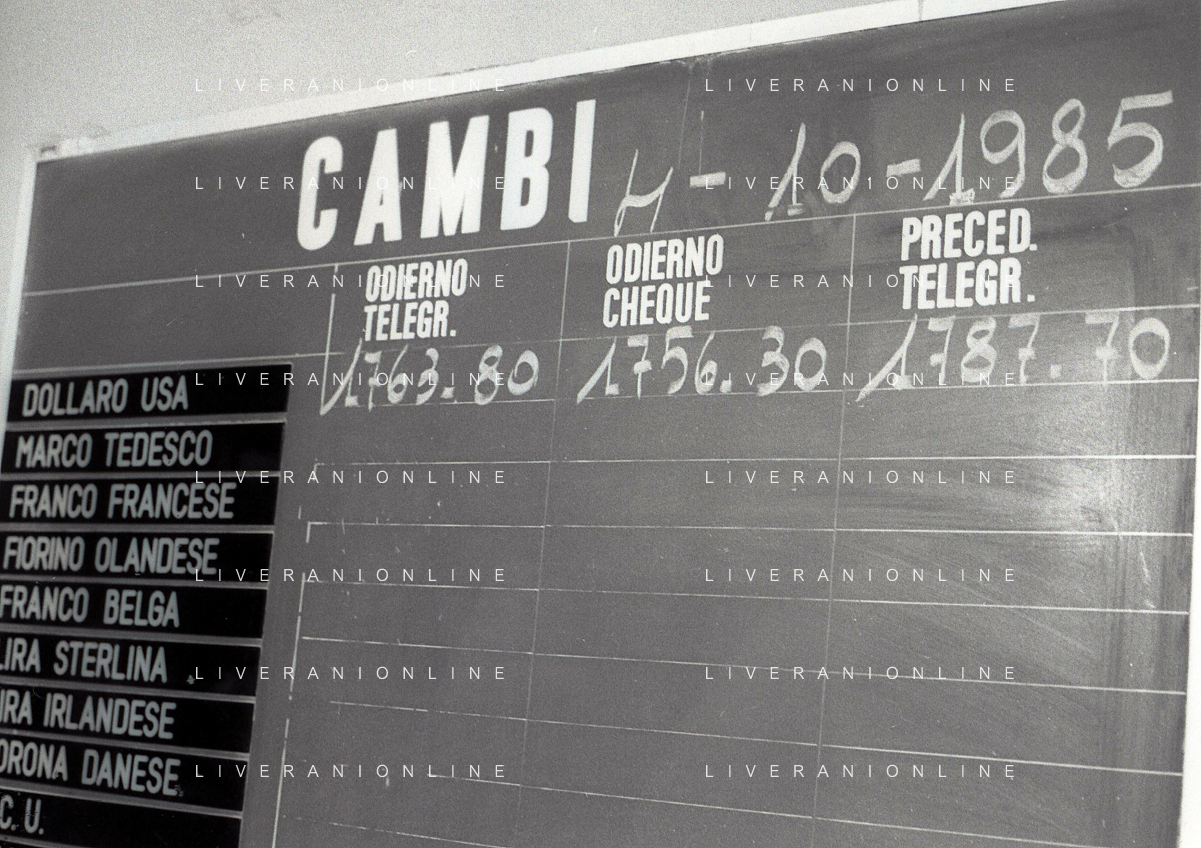 CAMBI 4-10-1985
ODIERNO TELEGR.
ODIERNO CHEQUE
PRECED. TELEGR.
DOLLARO USA 1763.80 1756.30 1787.70
MARCO TEDESCO
FRANCO FRANCESE
FIORINO OLANDESE
FRANCO BELGA
LIRA STERLINA
IRA IRLANDESE
ORONA DANESE
C.U.
LIVERANIONLINE LIVERANIONLINE
LIVERANIONLINE LIVERANIONLINE
LIVERANIONLINE LIVERANIONLINE
LIVERANIONLINE LIVERANIONLINE
LIVERANIONLINE LIVERANIONLINE
LIVERANIONLINE LIVERANIONLINE
LIVERANIONLINE LIVERANIONLINE
LIVERANIONLINE LIVERANIONLINE